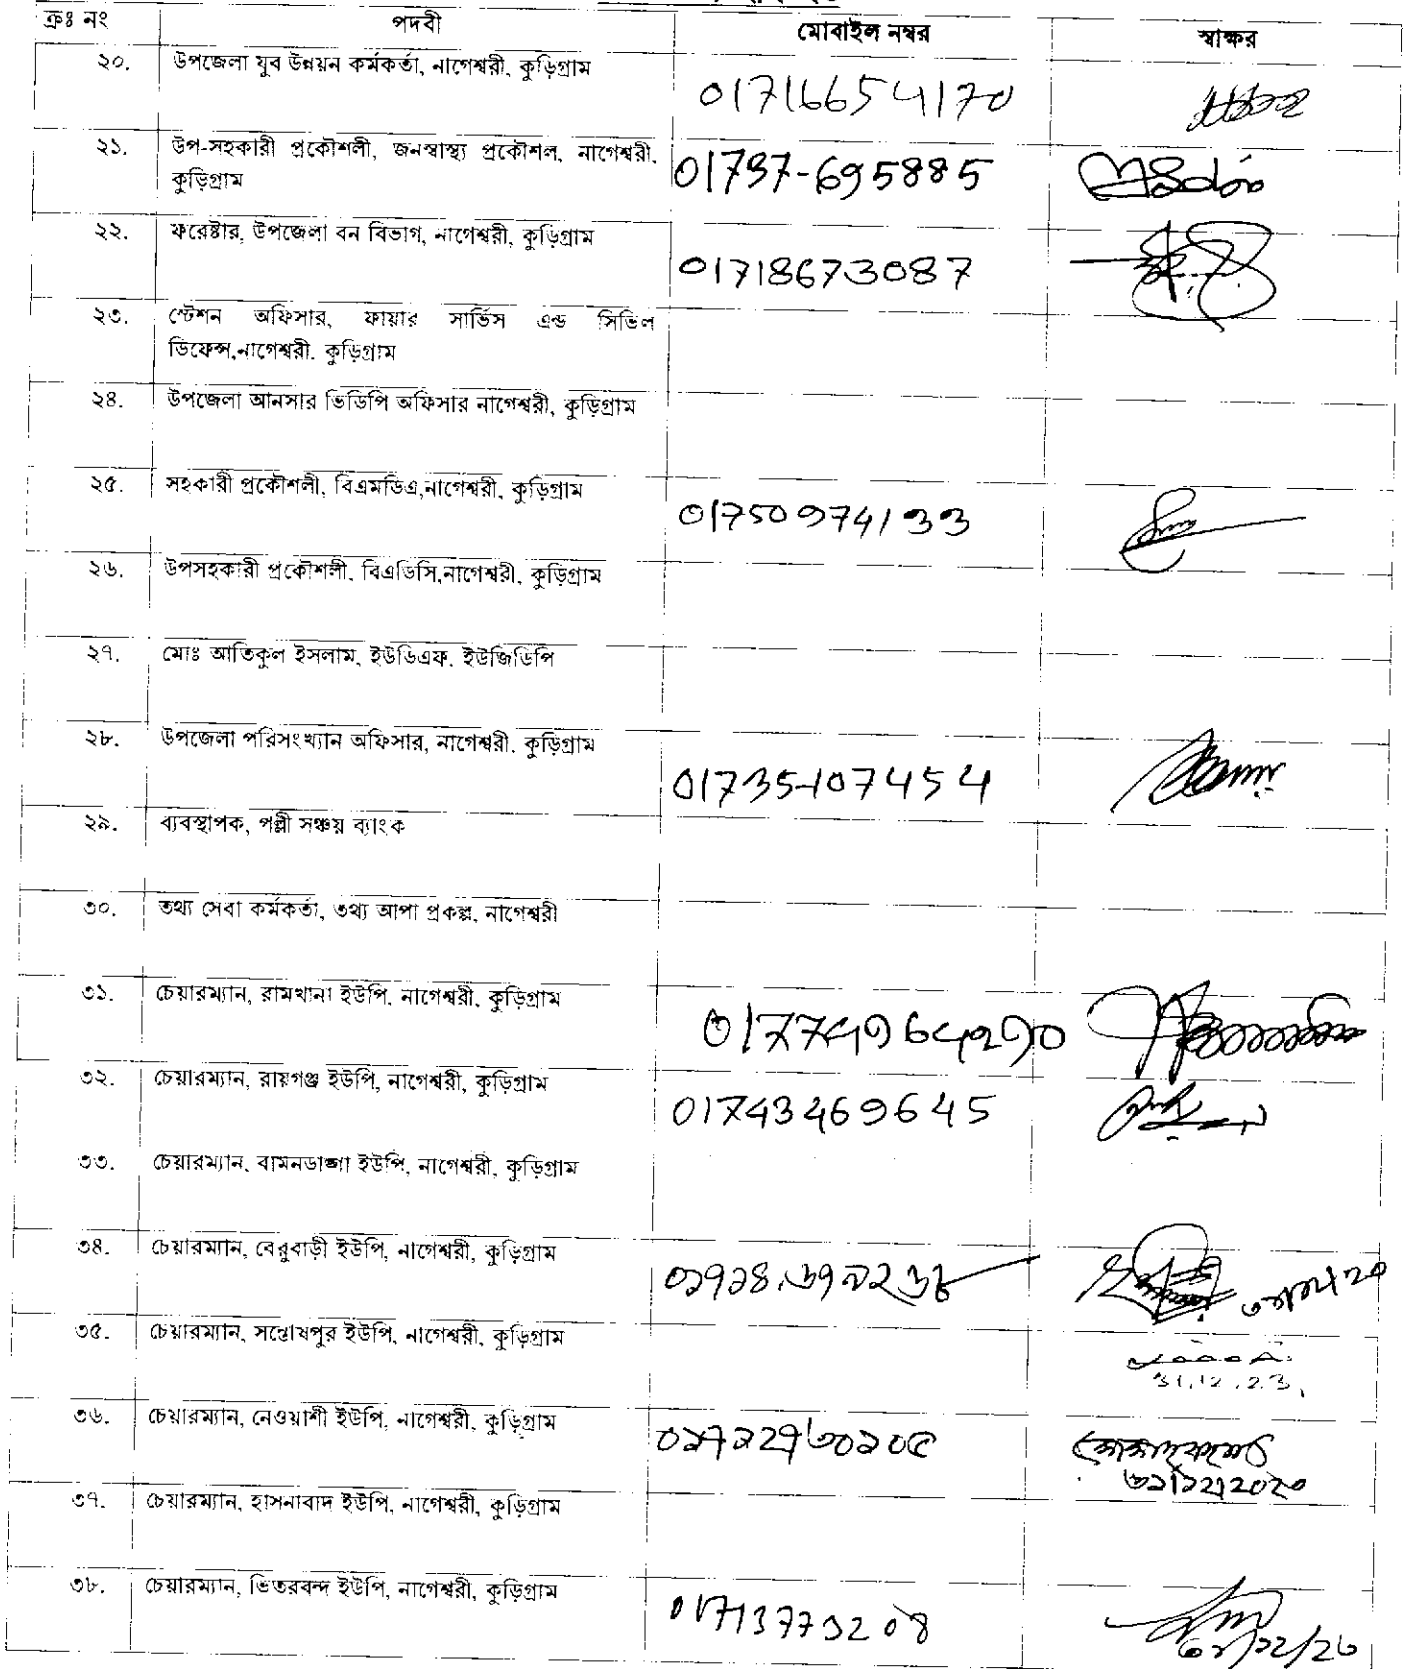 ক্রঃ নং পদবী মোবাইল নম্বর স্বাক্ষর
২০. উপজেলা যুব উন্নয়ন কর্মকর্তা, নাগেশ্বরী, কুড়িগ্রাম 01716654170
২১. উপ-সহকারী প্রকৌশলী, জনস্বাস্থ্য প্রকৌশল, নাগেশ্বরী, 01737-695885
কুড়িগ্রাম
২২. ফরেষ্টার, উপজেলা বন বিভাগ, নাগেশ্বরী, কুড়িগ্রাম 01718673087
২৩. স্টেশন অফিসার, ফায়ার সার্ভিস এন্ড সিভিল
ডিফেন্স,নাগেশ্বরী. কুড়িগ্রাম
২৪. উপজেলা আনসার ভিডিপি অফিসার নাগেশ্বরী, কুড়িগ্রাম
২৫. সহকারী প্রকৌশলী, বিএমডিএ,নাগেশ্বরী, কুড়িগ্রাম 01750974133
২৬. উপসহকারী প্রকৌশলী, বিএডিসি,নাগেশ্বরী, কুড়িগ্রাম
২৭. মোঃ আতিকুল ইসলাম, ইউডিএফ. ইউজিডিপি
২৮. উপজেলা পরিসংখ্যান অফিসার, নাগেশ্বরী. কুড়িগ্রাম 01735107454
২৯. ব্যবস্থাপক, পল্লী সঞ্চয় ব্যাংক
৩০. তথ্য সেবা কর্মকর্তা, তথ্য আপা প্রকল্প, নাগেশ্বরী
৩১. চেয়ারম্যান, রামখানা ইউপি, নাগেশ্বরী, কুড়িগ্রাম
৩২. চেয়ারম্যান, রায়গঞ্জ ইউপি, নাগেশ্বরী, কুড়িগ্রাম 01743469645
৩৩. চেয়ারম্যান, বামনডাঙ্গা ইউপি, নাগেশ্বরী, কুড়িগ্রাম
৩৪. চেয়ারম্যান, বেরুবাড়ী ইউপি, নাগেশ্বরী, কুড়িগ্রাম
৩৫. চেয়ারম্যান, সন্তোষপুর ইউপি, নাগেশ্বরী, কুড়িগ্রাম
31.12.23,
৩৬. চেয়ারম্যান, নেওয়াশী ইউপি, নাগেশ্বরী, কুড়িগ্রাম
৩৭. চেয়ারম্যান, হাসনাবাদ ইউপি, নাগেশ্বরী, কুড়িগ্রাম
৩৮. চেয়ারম্যান, ভিতরবন্দ ইউপি, নাগেশ্বরী, কুড়িগ্রাম